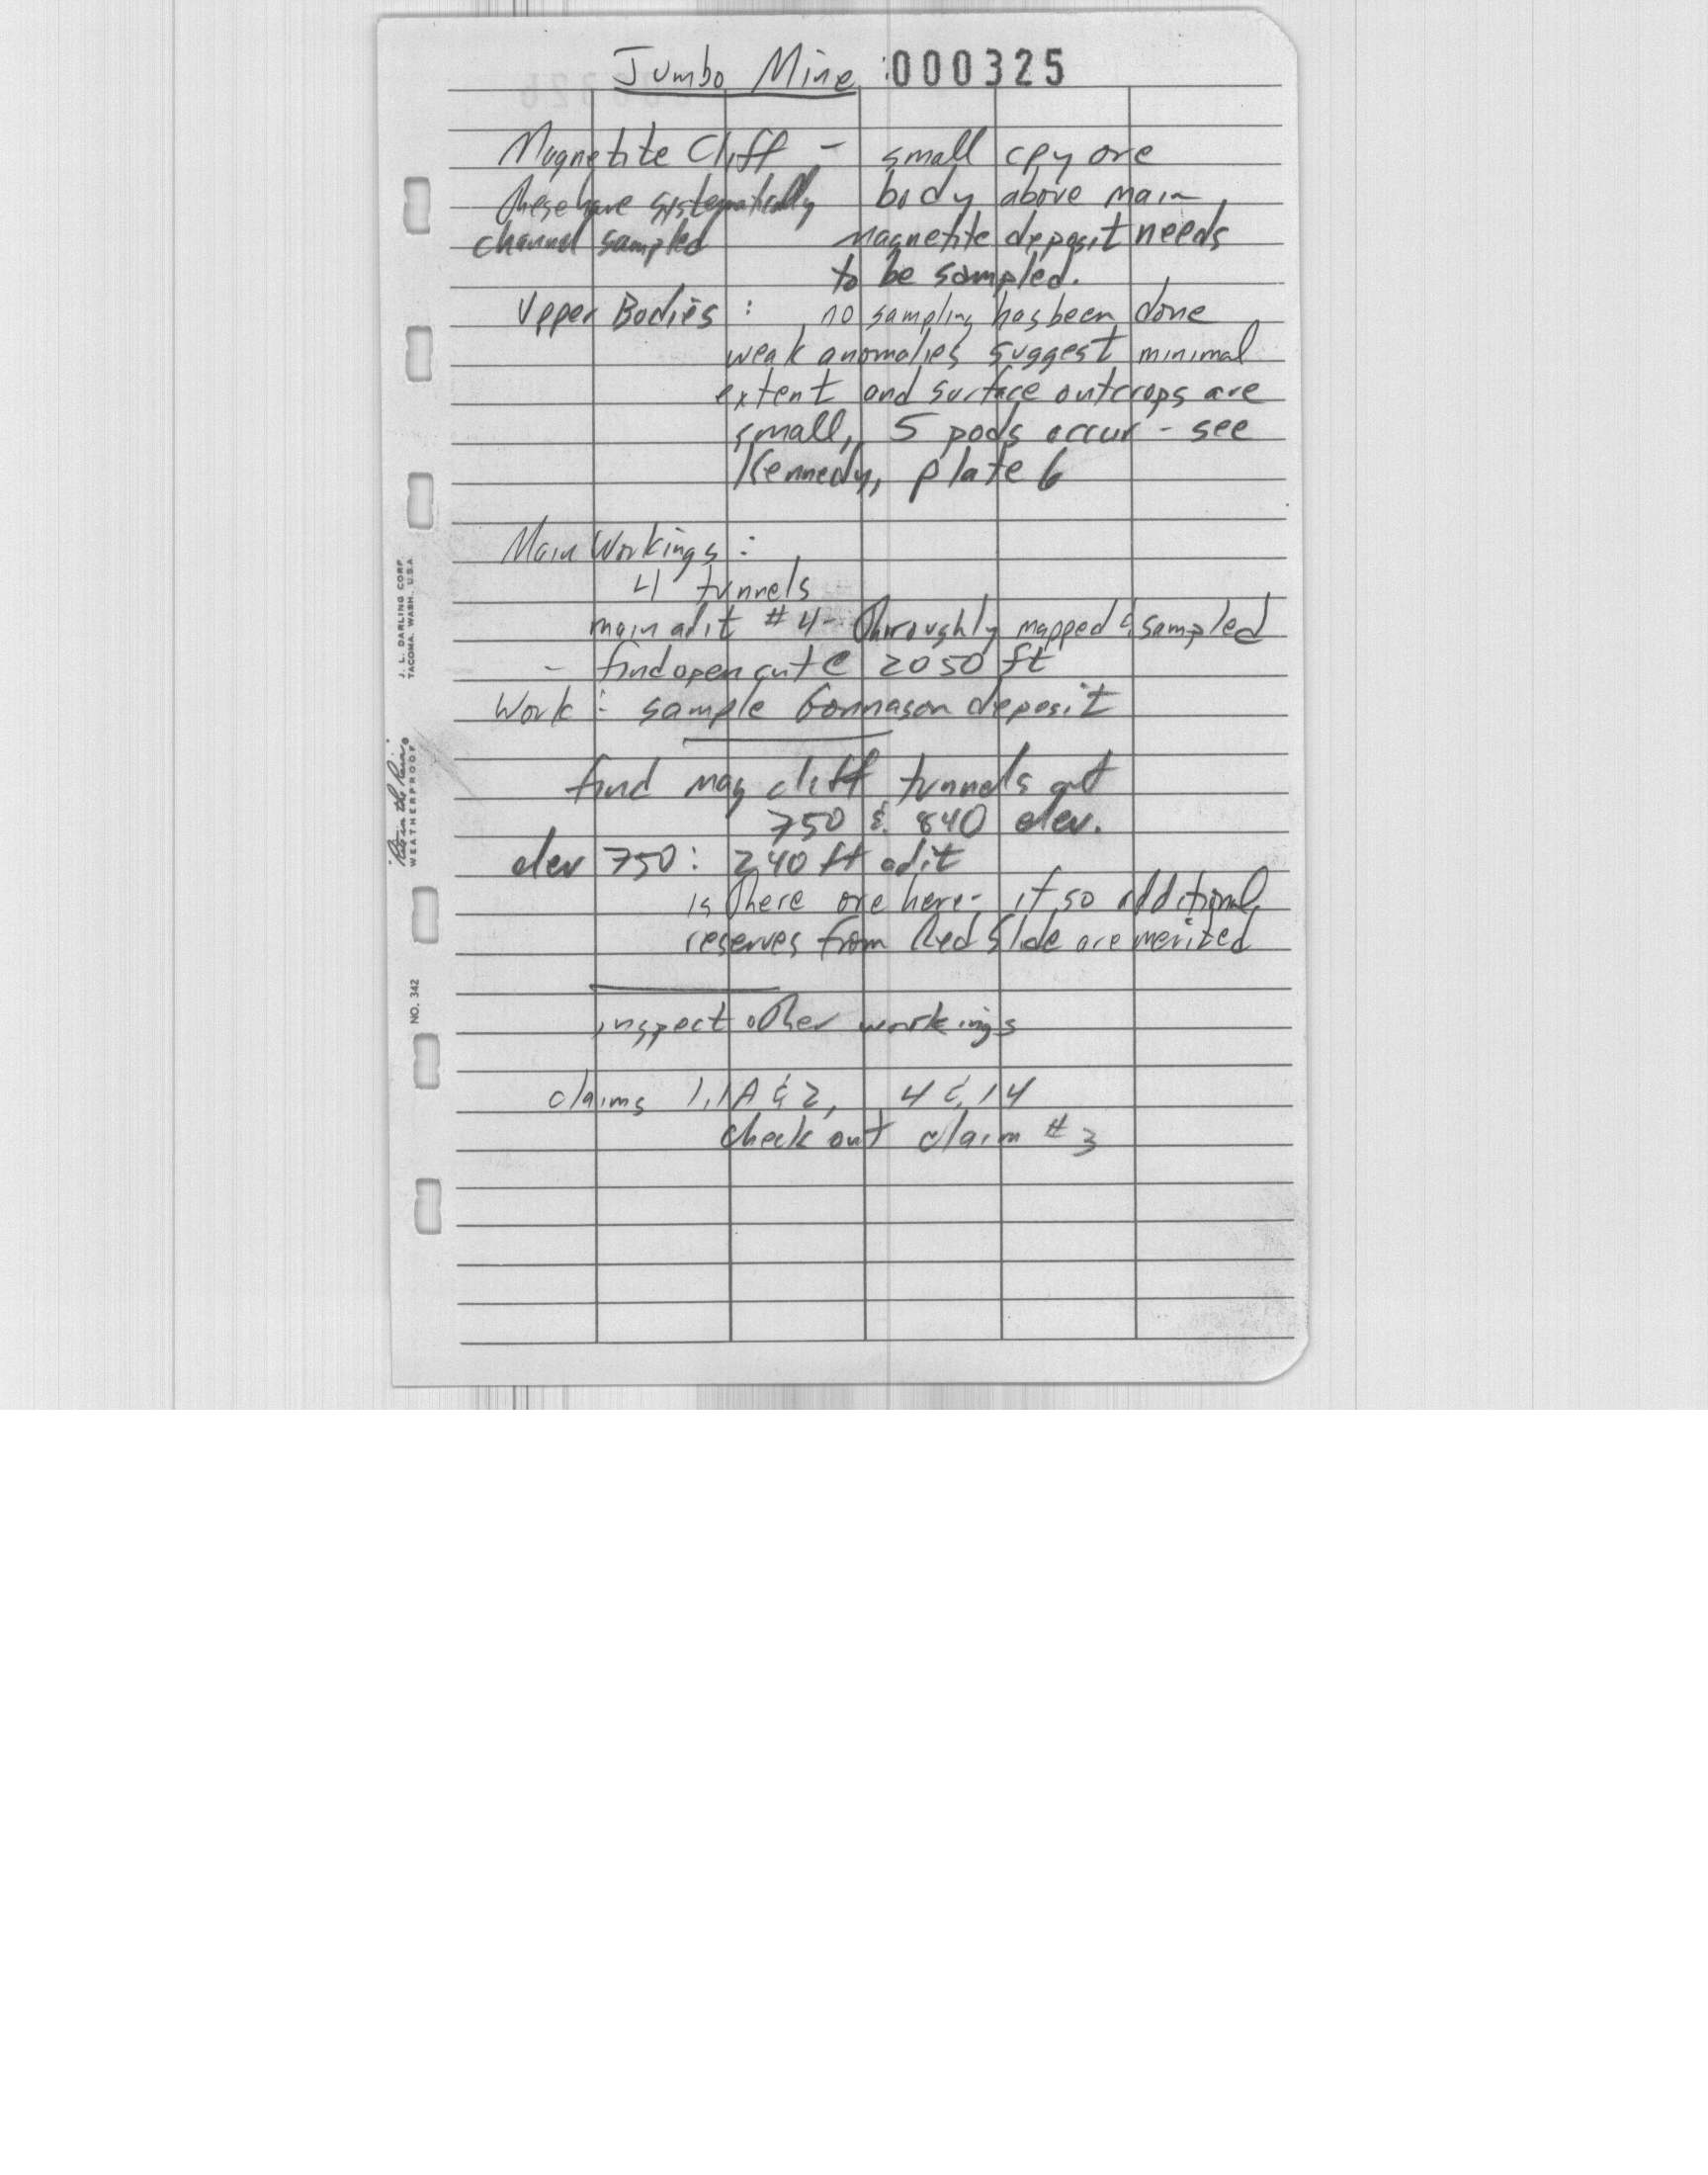 Jumbo Mine 000325
Magnetite Cliff - small cpy ore
these have systematically body above main
channel sampled magnetite deposit needs
to be sampled.
Upper Bodies : no sampling has been done
weak anomalies suggest minimal
extent and surface outcrops are
small, 5 pods occur - see
Kennedy, plate 6
Main Workings :
4 tunnels
main adit #4 - thoroughly mapped & sampled
- find open cut @ 2050 ft
Work : sample Gonnason deposit
find mag cliff tunnels at
750 & 840 elev.
elev 750 : 240 ft adit
is there ore here - if so additional
reserves from Red Slide are merited
inspect other workings
claims 1, 1A & 2, 4 & 14
check out claim # 3
J. L. DARLING CORP.
TACOMA, WASH. U.S.A
"Rite in the Rain"
WEATHERPROOF
NO. 342